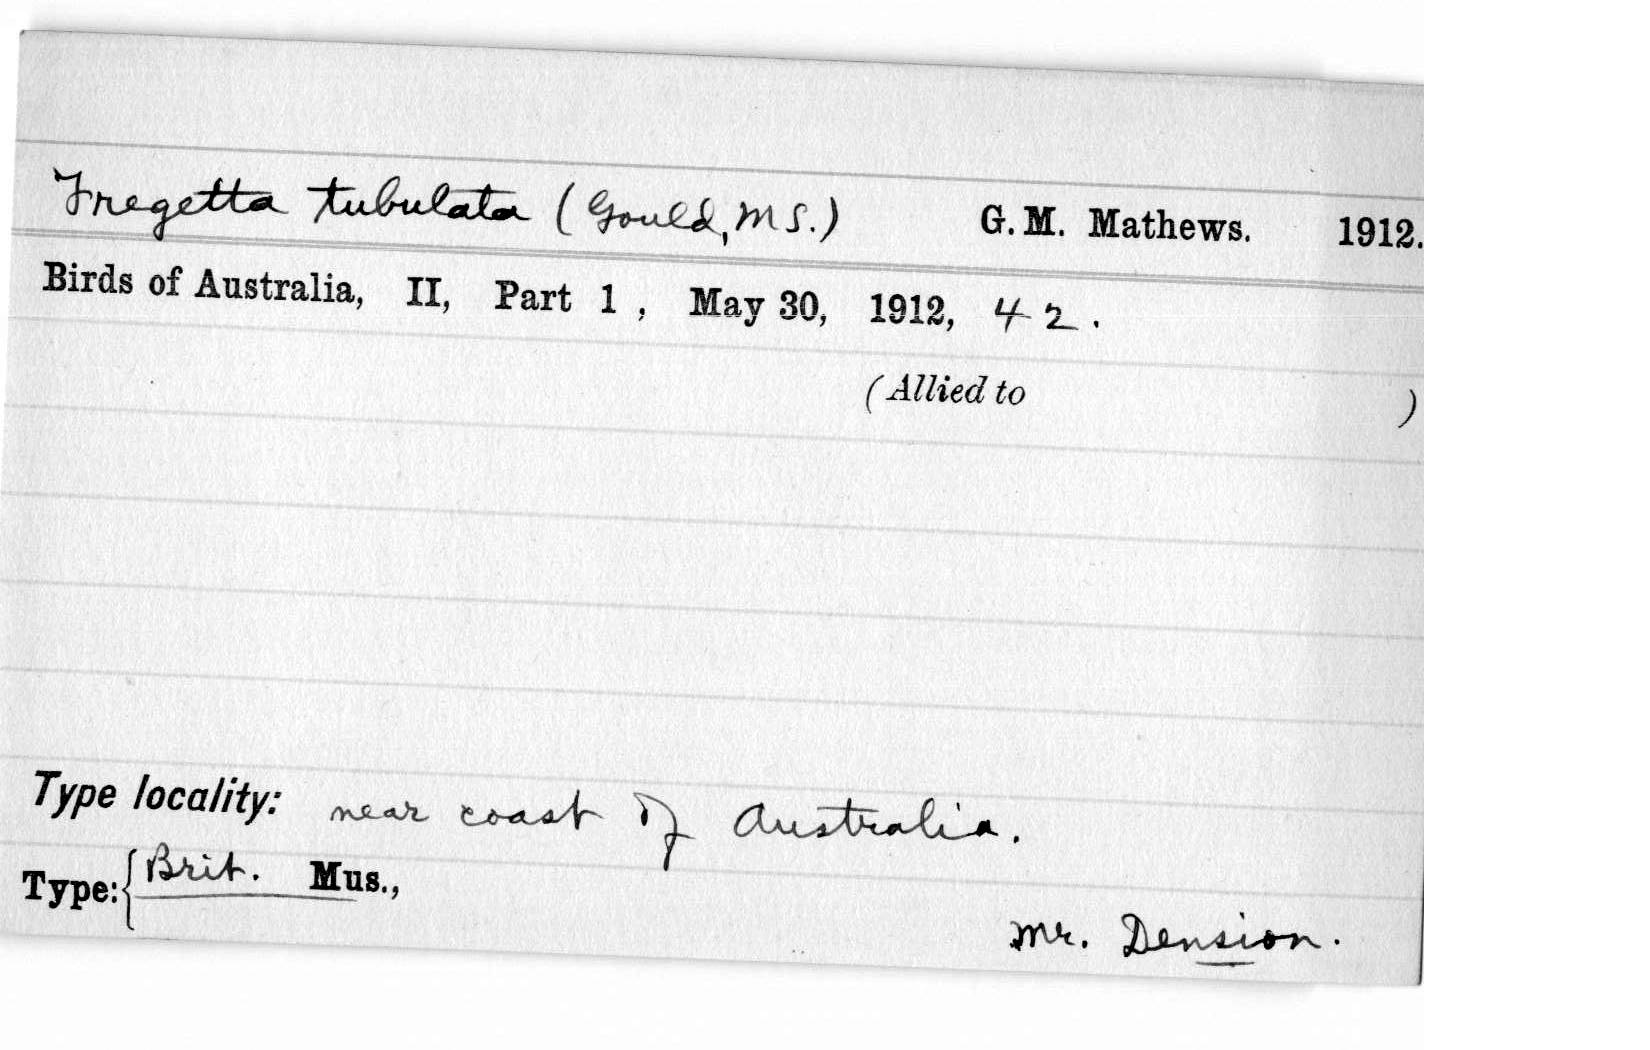 Fregetta tubulata (Gould, MS.) G. M. Mathews. 1912.
Birds of Australia, II, Part 1, May 30, 1912, 42.
(Allied to )
Type locality: near coast of Australia.
Type: { Brit. Mus.,
Mr. Dension.